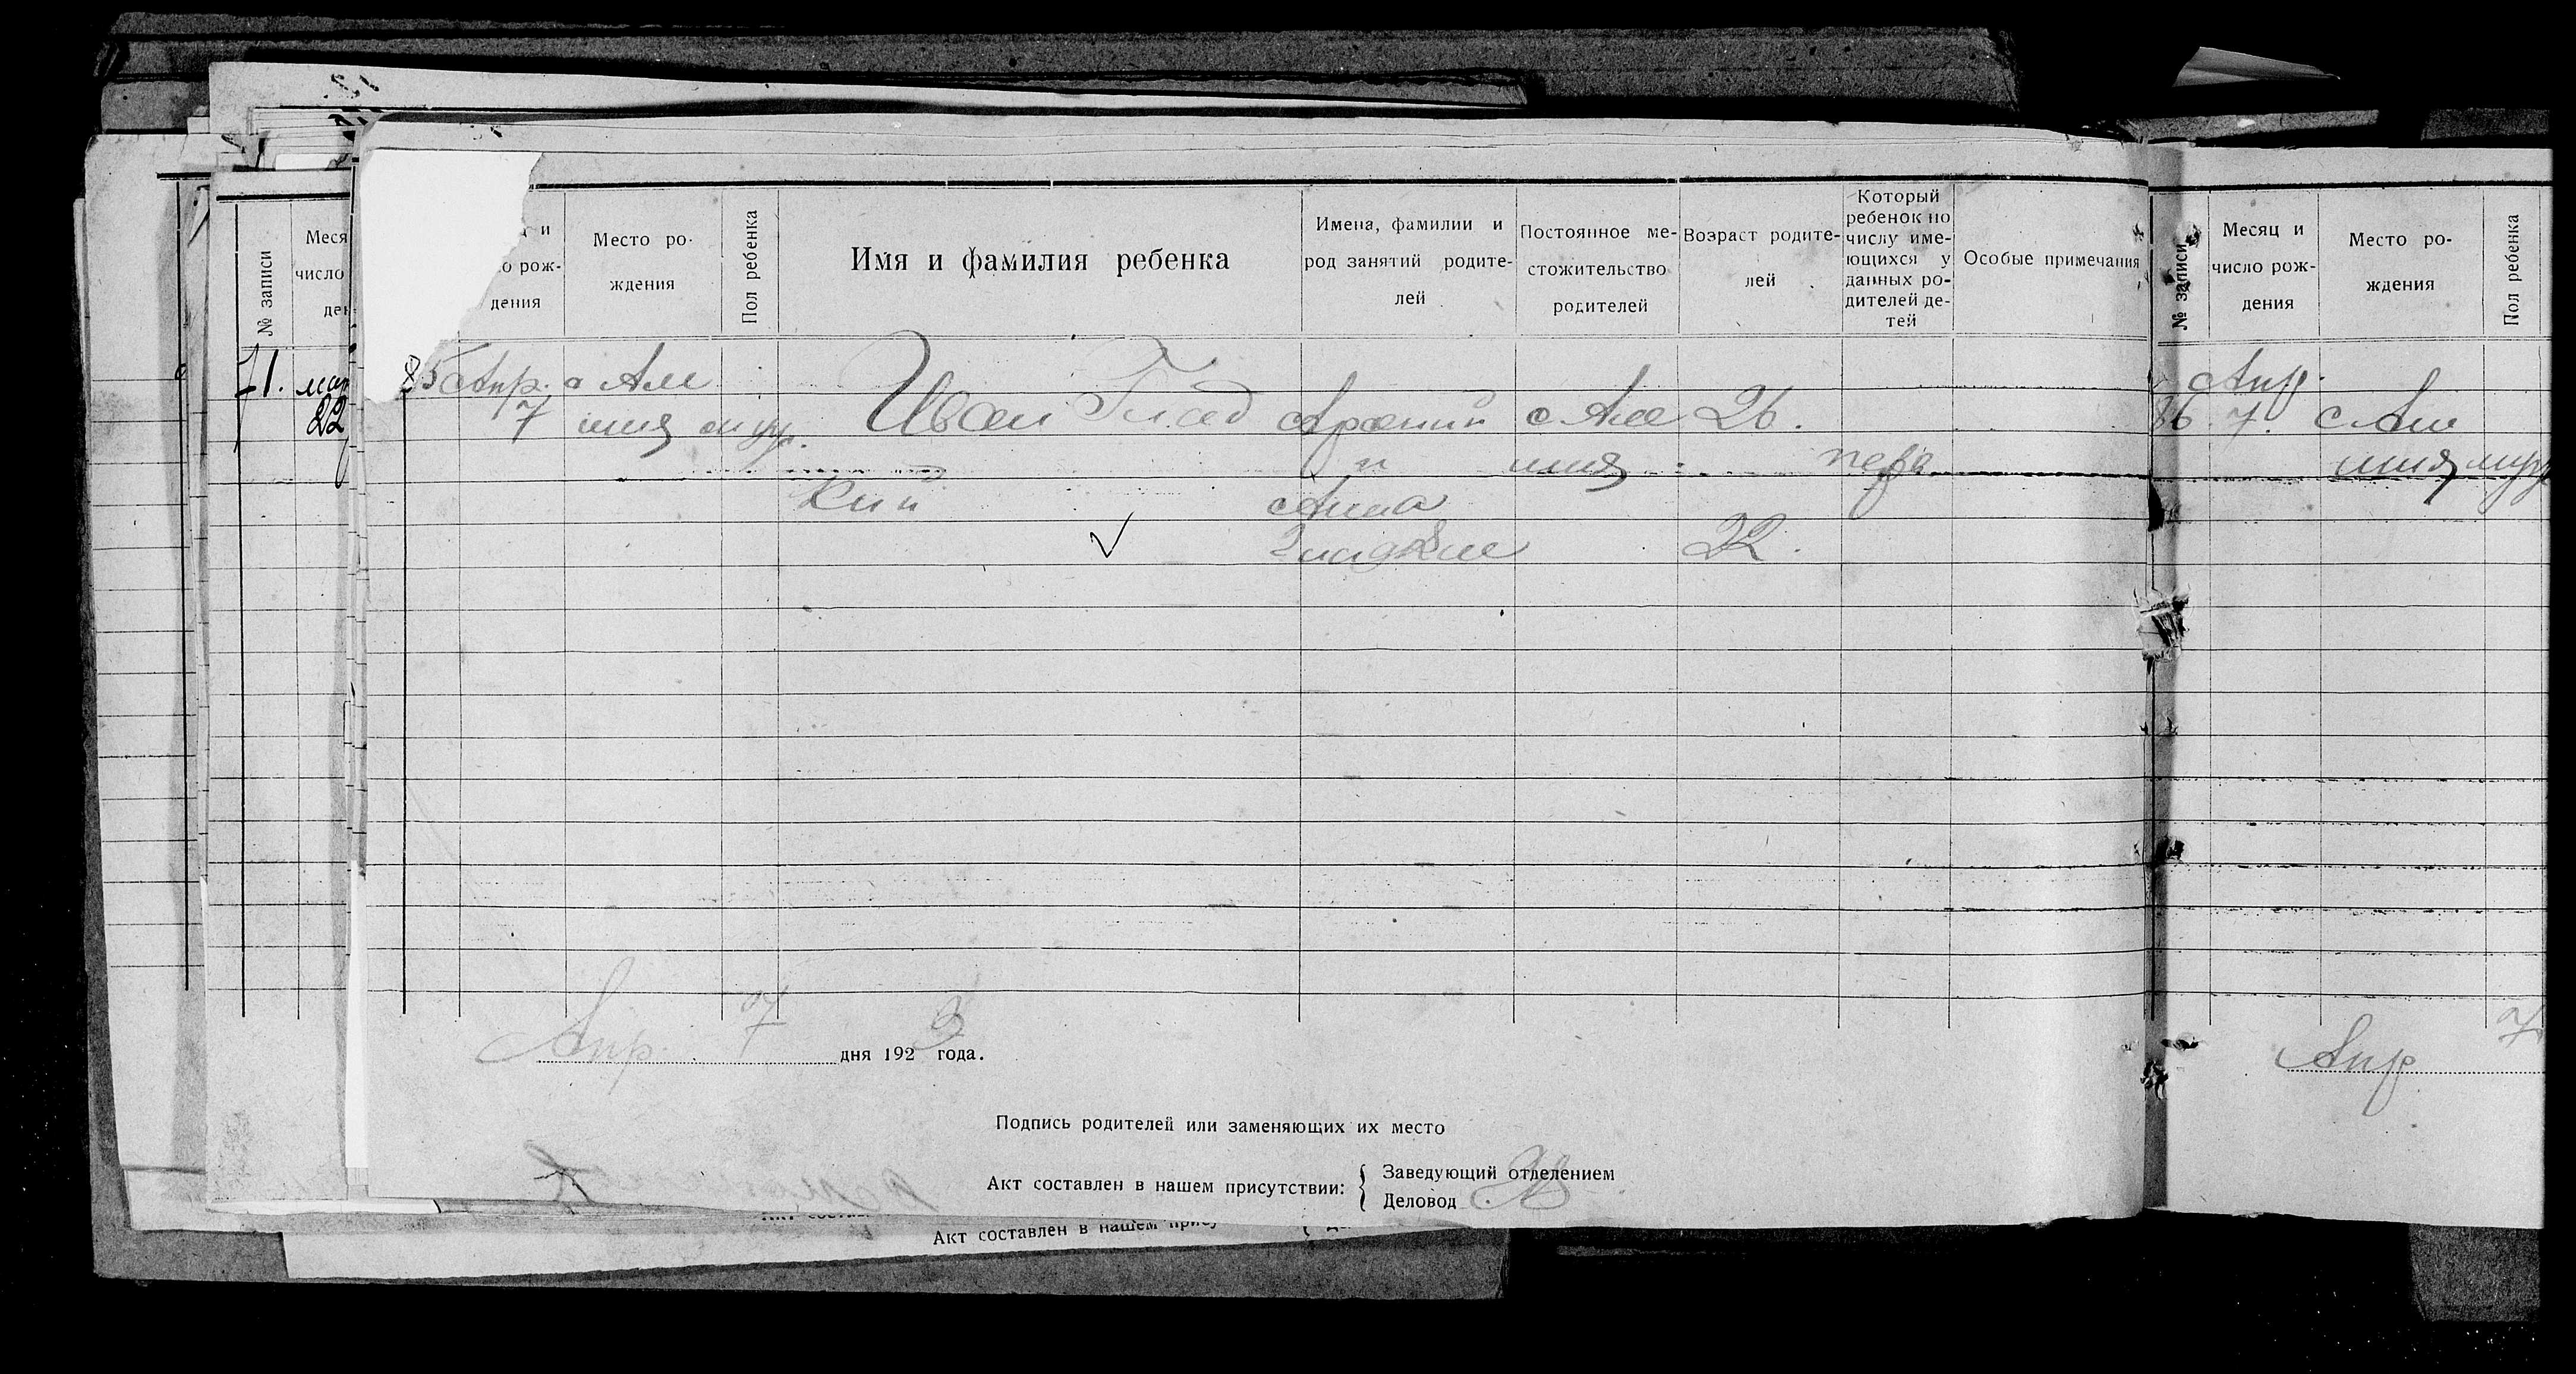 № записи
Меся
число
ден
71. мар
22
и
о рож-
дения
Место ро-
ждения
Пол ребенка
Имя и фамилия ребенка
Имена, фамилии и
род занятий родите-
лей
Постоянное ме-
стожительство
родителей
Возраст родите-
лей
Который
ребенок по
числу име-
ющихся у
данных ро-
дителей де-
тей
Особые примечания
85 Апр. с Ам
7 шия муж. Иван Глад Арсений с Ам 26.
и шия перв
кий Анна
Гладкие 22.
Апр. 7 дня 1923 года.
Подпись родителей или заменяющих их место
Акт составлен в нашем присутствии: { Заведующий отделением
Деловод
Акт составлен в нашем прису
№ записи
Месяц и
число рож-
дения
Место ро-
ждения
Пол ребенка
Апр.
86. 7. с Ам
шия муж
Апр 7